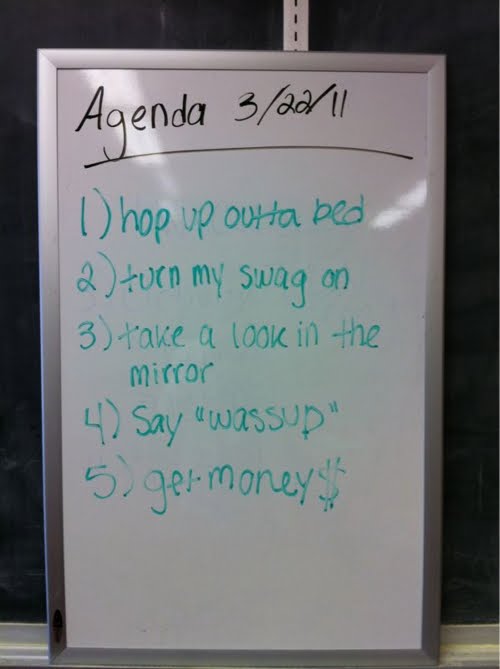 Agenda 3/22/11
1) hop up outta bed
2) turn my swag on
3) take a look in the
mirror
4) Say "wassup"
5) get money $